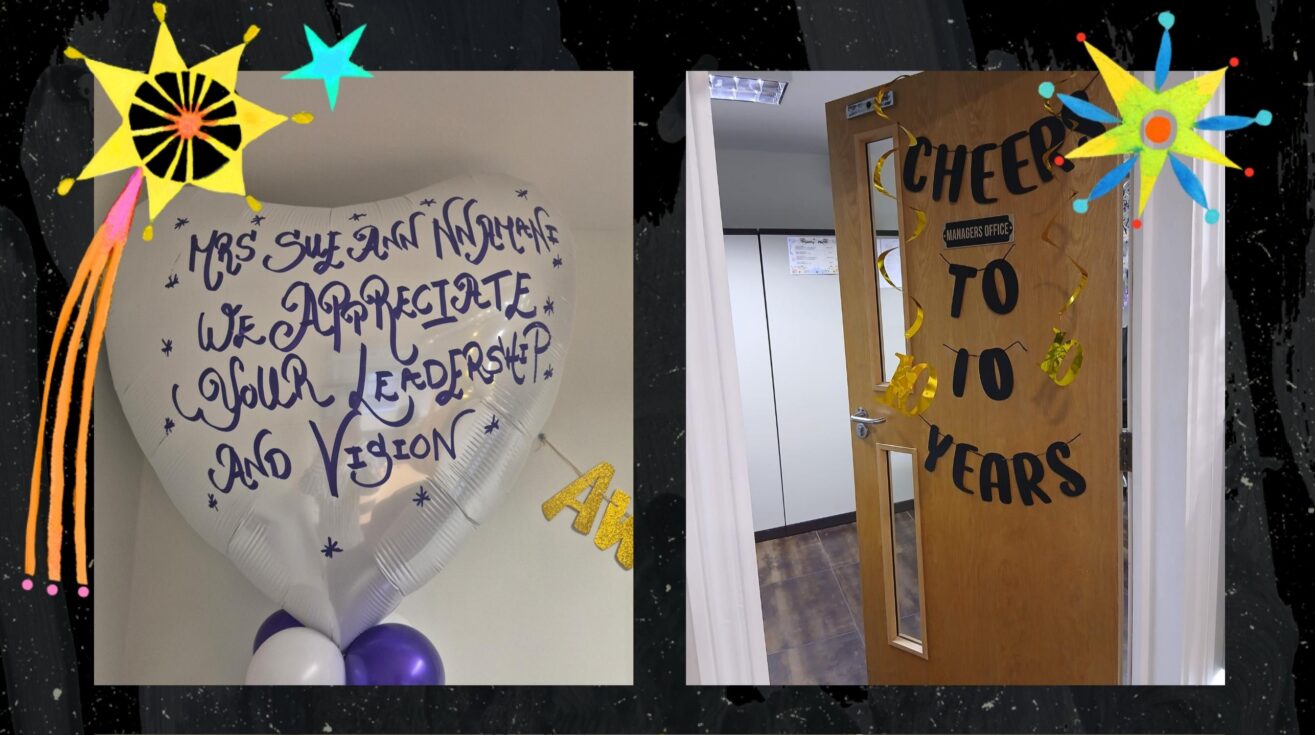 MRS SUE ANN NNAMANI
WE APPRECIATE
YOUR LEADERSHIP
AND VISION
AW
CHEERS
MANAGERS OFFICE
TO
10
YEARS
10
10